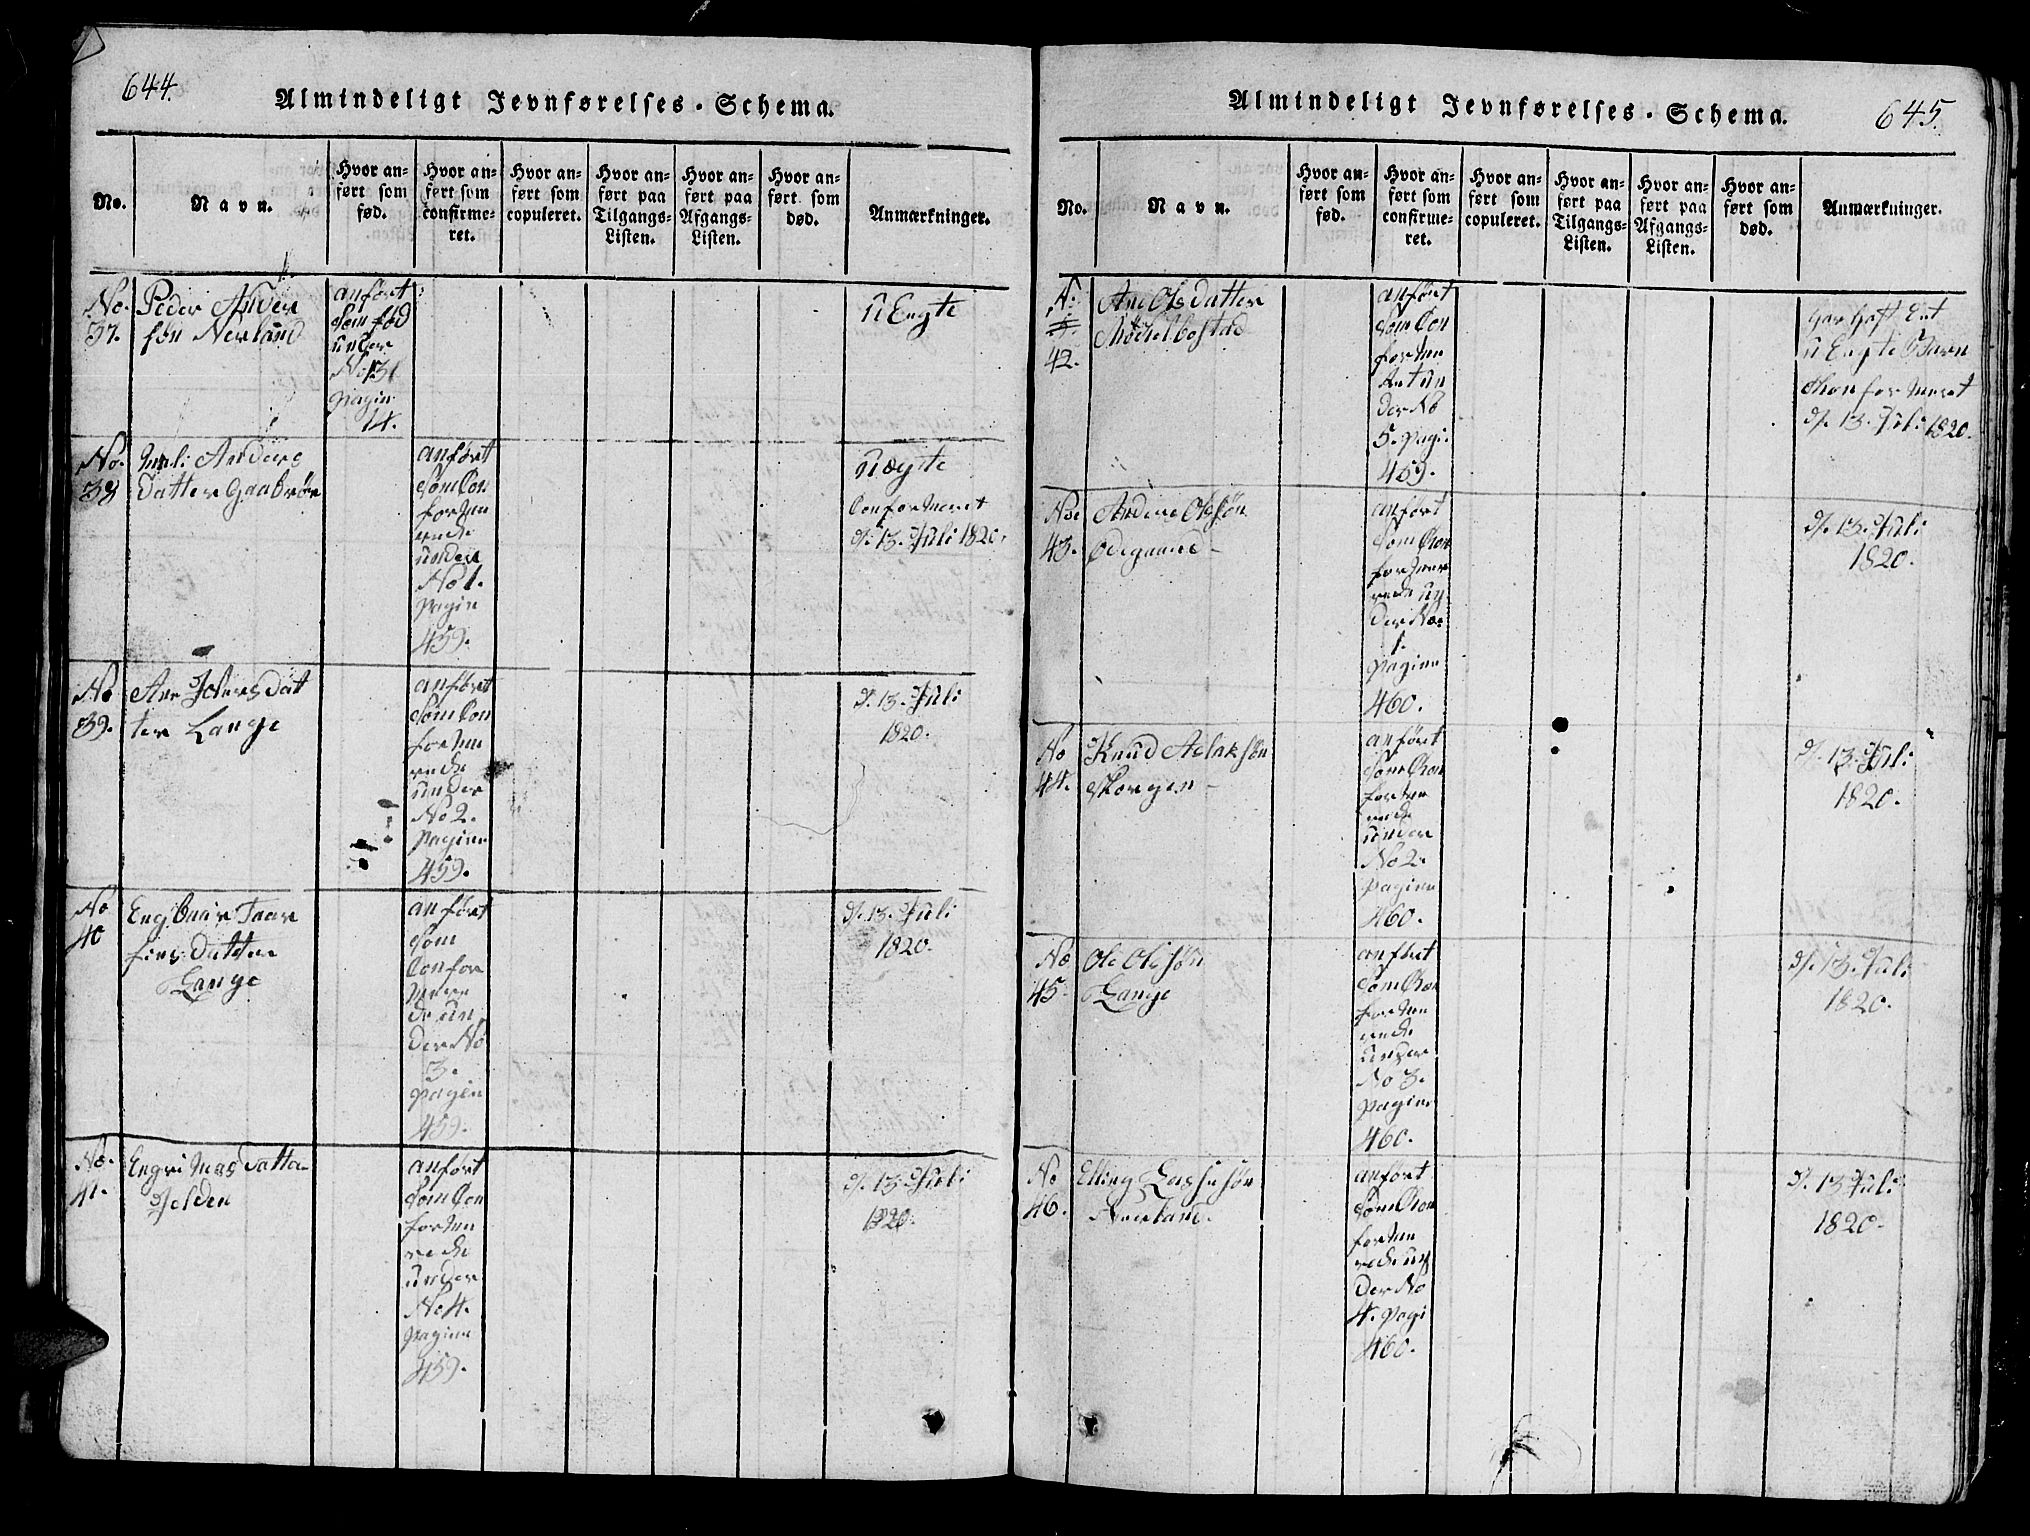 644.
Almindeligt Jevnførelses-Schema.
No.
Navn.
Hvor an-
ført som
fød.
Hvor an-
ført som
confirme-
ret.
Hvor an-
ført som
copuleret.
Hvor an-
ført paa
Tilgangs-
Listen.
Hvor an-
ført paa
Afgangs-
Listen.
Hvor an-
ført som
død.
Anmærkninger.
No.
37.
Peder Ander
søn Nerland
anført
som fød
under
No 31
pagin
14.
U Engte
No.
38
Anders
datter Gaabrøe
anført
som Con
forme
rede
under
No 1.
pagin
459.
Uægte
Conformeret
d. 13. Juli 1820.
No
39.
Ane Iversdat
ter Lange
anført
som Con
forme
rede
under
No 2.
pagina
459.
d. 13. Juli
1820.
No
40
Engbaar Taar
fins datter
Lange
anført
som
Confor
mere
de un
der No
3.
pagin
459.
d. 13. Juli
1820.
No.
41.
Engri Mas datter
Jelden
anført
som Con
forme
rede
under
No 4.
pagina
459.
d. 13 Juli
1820.
Almindeligt Jevnførelses-Schema.
645.
No.
Navn.
Hvor an-
ført som
fød.
Hvor an-
ført som
confirme-
ret.
Hvor an-
ført som
copuleret.
Hvor an-
ført paa
Tilgangs-
Listen.
Hvor an-
ført paa
Afgangs-
Listen.
Hvor an-
ført som
død.
Anmærkninger.
N.
42.
Ane Olsdatter
Møchelbostad
anført
som Con
forme
ret un
der No
5. pagi.
459.
har haft Et
u Engte Barn
Konformeret
d. 13. Juli 1820.
No
43.
Anders Olsøn
Ødegaard
anført
som Con
forme
rede un
der No
1.
pagina
460.
d. 13. Juli
1820.
No
44.
Knud Aslaksøn
Skorgen
anført
som Con
forme
rede
under
No 2.
pagina
460.
d. 13. Juli
1820.
No
45.
Ole Olesøn
Lange
anført
som Con
forme
rede
under
No 3.
pagina
460.
d. 13. Juli
1820.
No
46.
Elling Lassesøn
Nerland.
anført
som Con
forme
rede un
der No
4. pagi
460.
d. 13 Juli
1820.